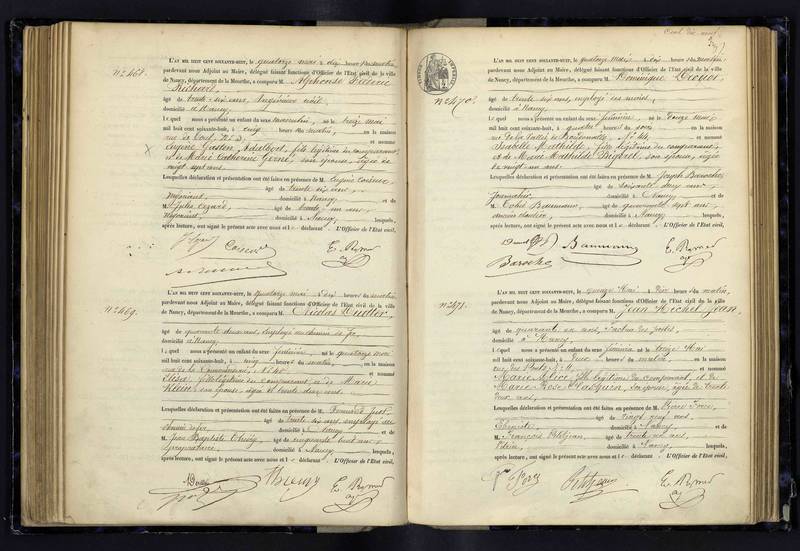 No. 468.
L'AN MIL HUIT CENT SOIXANTE-HUIT, le quatorze mai à dix heures du matin
pardevant nous Adjoint au Maire, délégué faisant fonctions d'Officier de l'Etat civil de la ville
de Nancy, département de la Meurthe, a comparu M. Alphonse
Richard,
âgé de trente six ans, Ingénieur civil
domicilié à Nancy
lequel nous a présenté un enfant du sexe masculin, né le treize mai
mil huit cent soixante-huit, à cinq heures du matin, en la maison
rue de Toul, et nommé
Eugène Gaston Adalbert, fils légitime du comparant,
et de Marie Catherine son épouse, âgée de
vingt sept ans.
Lesquelles déclaration et présentation ont été faites en présence de M. Eugène
âgé de trente six ans
négociant, domicilié à Nancy et de
M. Jules âgé de trente un ans
négociant, domicilié à Nancy lesquels,
après lecture, ont signé le présent acte avec nous et le déclarant. L'Officier de l'Etat civil,
No. 469.
L'AN MIL HUIT CENT SOIXANTE-HUIT, le quatorze mai à dix heures du matin
pardevant nous Adjoint au Maire, délégué faisant fonctions d'Officier de l'Etat civil de la ville
de Nancy, département de la Meurthe, a comparu M. Nicolas
âgé de quarante deux ans, employé au chemin de fer
domicilié à Nancy
lequel nous a présenté un enfant du sexe féminin, né le quatorze mai
mil huit cent soixante-huit, à cinq heures du matin, en la maison
rue de la et nommé
Elisa, fille légitime du comparant, et de Marie
Klein son épouse, âgée de trente deux ans.
Lesquelles déclaration et présentation ont été faites en présence de M.
âgé de trente six ans, employé au
chemin de fer domicilié à Nancy et de
M. Jean Baptiste âgé de cinquante huit ans
propriétaire, domicilié à Nancy lesquels,
après lecture, ont signé le présent acte avec nous et le déclarant. L'Officier de l'Etat civil,
Cent dix neuf
No. 470.
L'AN MIL HUIT CENT SOIXANTE-HUIT, le quatorze mai à dix heures du matin
pardevant nous Adjoint au Maire, délégué faisant fonctions d'Officier de l'Etat civil de la ville
de Nancy, département de la Meurthe, a comparu M. Dominique
âgé de trente six ans, employé des mines,
domicilié à Nancy
lequel nous a présenté un enfant du sexe féminin, né le douze mai
mil huit cent soixante-huit, à quatre heures du soir en la maison
rue et nommé
Isabelle Mathilde, fille légitime du comparant,
et de Marie Mathilde son épouse, âgée
vingt un ans.
Lesquelles déclaration et présentation ont été faites en présence de M. Joseph Baroche
âgé de soixante deux ans,
Journalier, domicilié à Nancy et de
M. Tobie Baumann, âgé de quarante sept ans
domicilié à Nancy lesquels,
après lecture, ont signé le présent acte avec nous et le déclarant. L'Officier de l'Etat civil,
Baumann
Baroche
No. 471.
L'AN MIL HUIT CENT SOIXANTE-HUIT, le quinze Mai à dix heures du matin,
pardevant nous Adjoint au Maire, délégué faisant fonctions d'Officier de l'Etat civil de la ville
de Nancy, département de la Meurthe, a comparu M. Jean Michel Jean,
âgé de quarante un ans, facteur des postes,
domicilié à Nancy
lequel nous a présenté un enfant du sexe féminin né le treize Mai
mil huit cent soixante-huit, à onze heures du matin en la maison
rue des et nommé
Marie Alice, fille légitime du comparant, et de
Marie Rose son épouse, âgée de trente
deux ans,
Lesquelles déclaration et présentation ont été faites en présence de M.
âgé de vingt neuf ans,
Ebéniste, domicilié à Nancy et de
M. François Petitjean, âgé de trente un ans,
domicilié à Nancy lesquels,
après lecture, ont signé le présent acte avec nous et le déclarant. L'Officier de l'Etat civil,
Petitjean